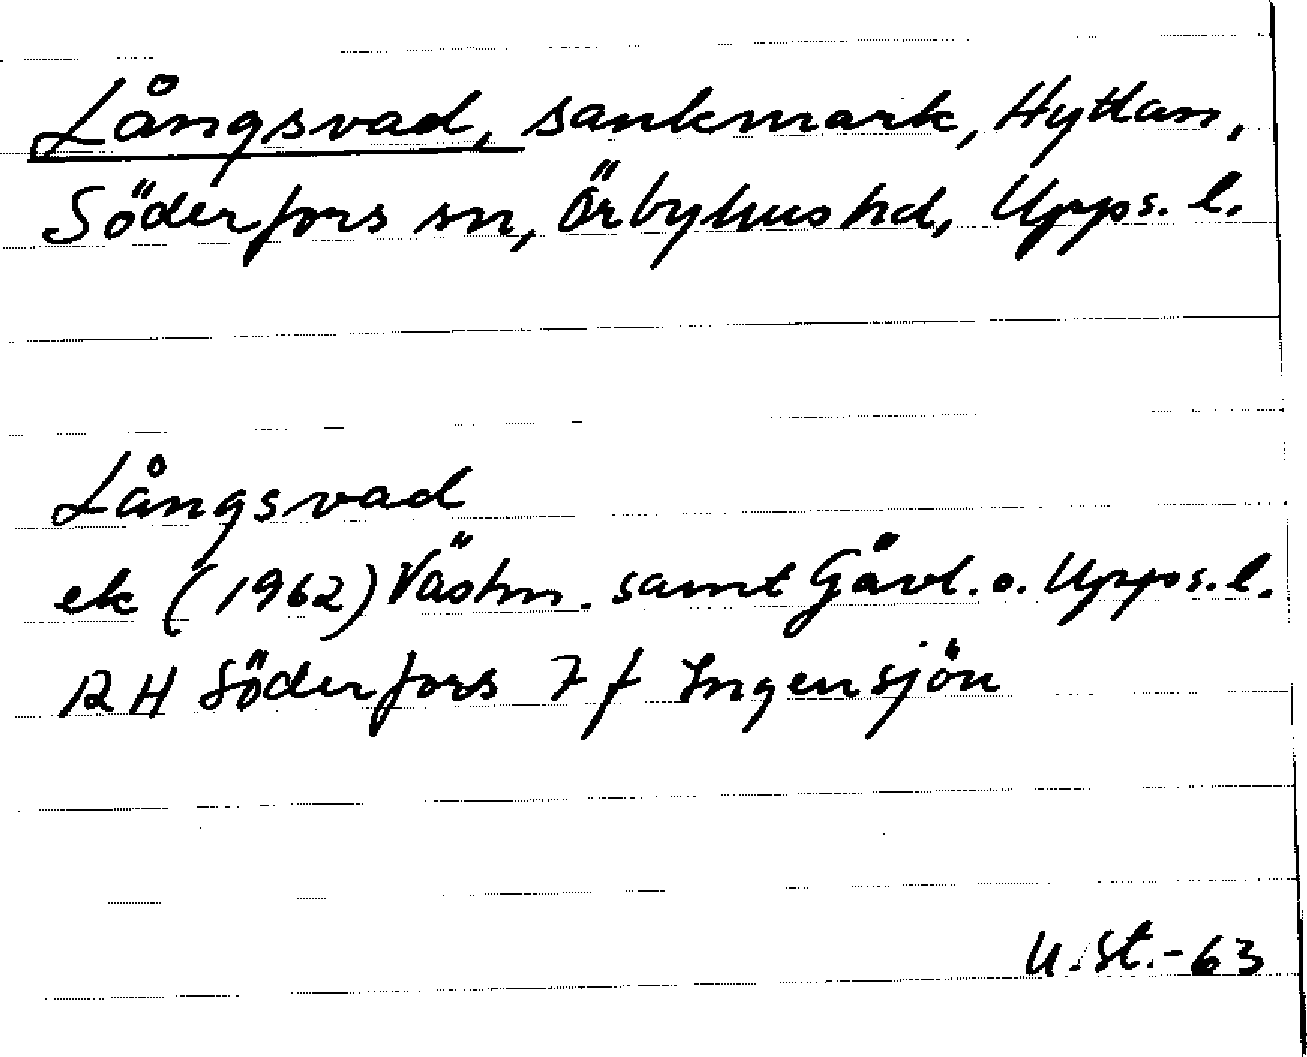 Långsvad, sankmark, Hyttan,
Söderfors sn, Örbyhus hd, Upps. l.
Långsvad
ek (1962) Västm. samt Gävl. o. Upps. l.
12 H Söderfors 7 f Ingensjön
U. St. - 63